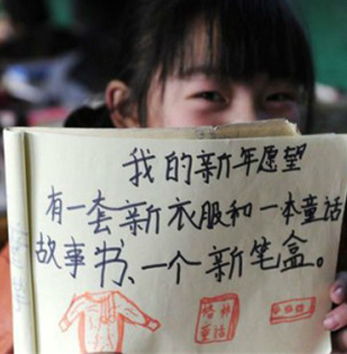 我的新年愿望
有一套新衣服和一本童话
故事书、一个新笔盒。
格林
童话